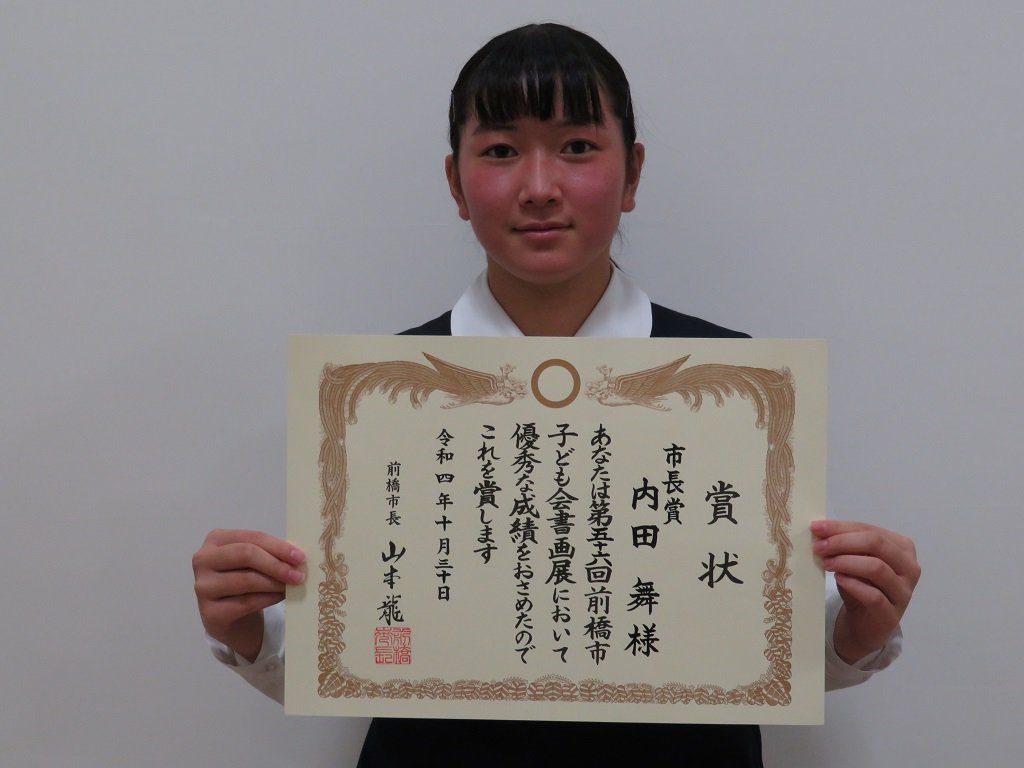 賞状
市長賞
内田 舞 様
あなたは第五十六回前橋市
子ども会書画展において
優秀な成績をおさめたので
これを賞します
令和四年十月三十日
前橋市長 山本龍